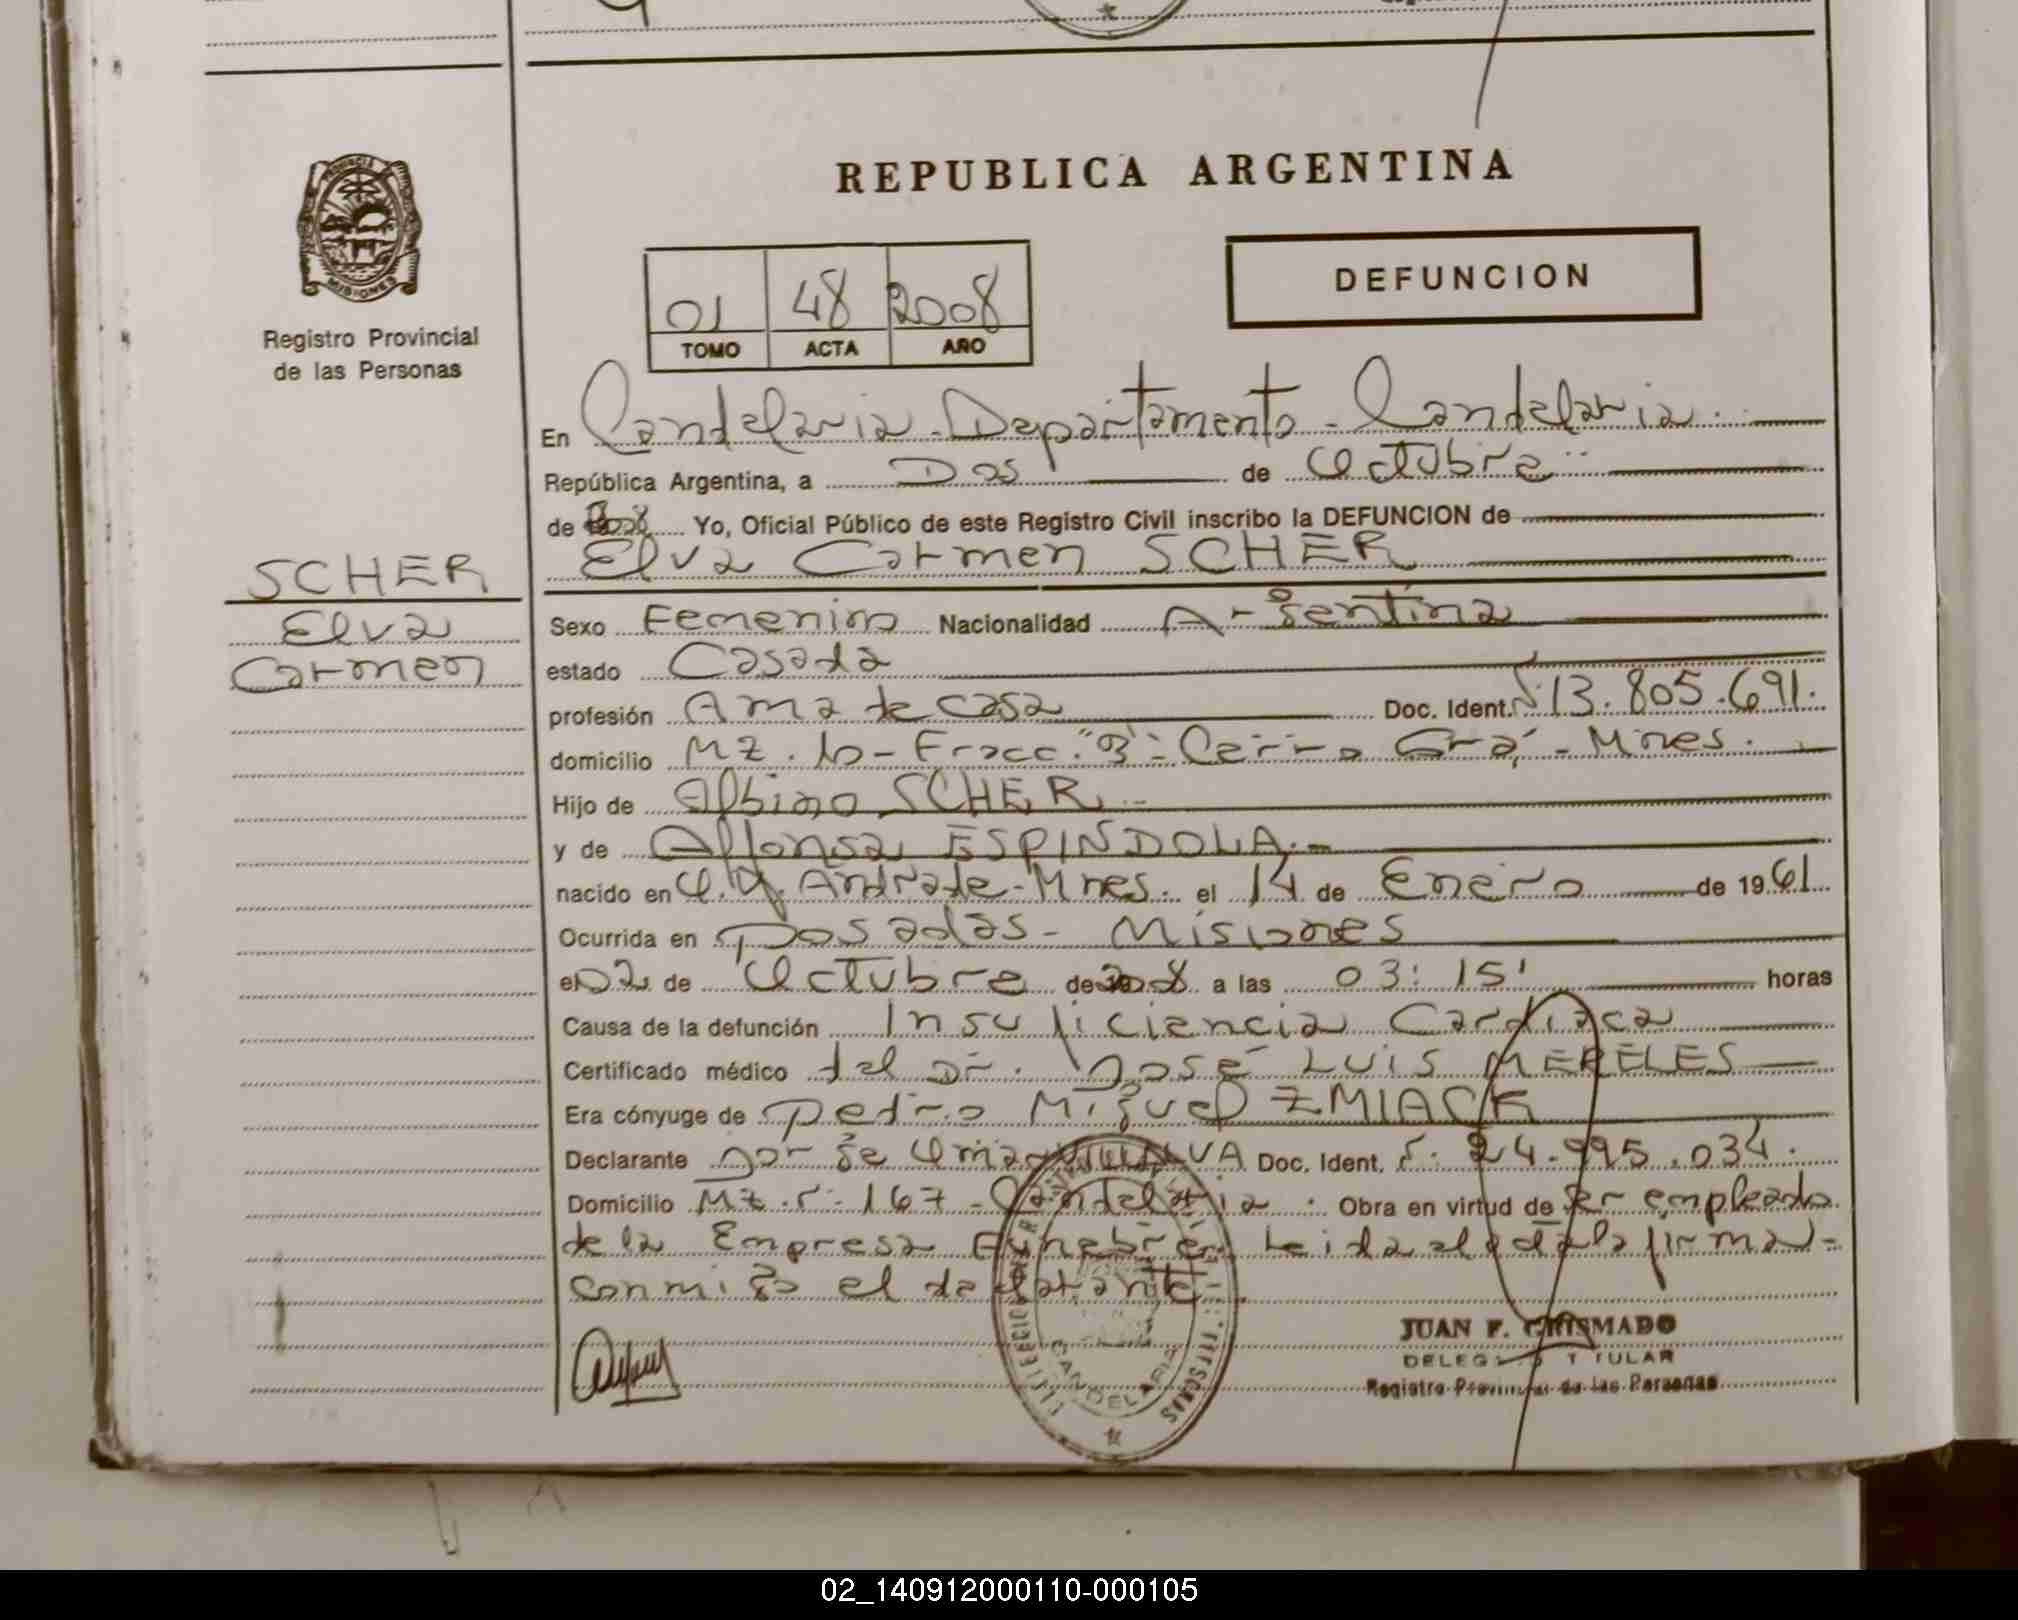 REPUBLICA ARGENTINA
PROVINCIA
MISIONES
Registro Provincial
de las Personas
01 48 2008
TOMO ACTA AÑO
DEFUNCION
En Candelaria - Departamento - Candelaria.
República Argentina, a Dos de Octubre
de 2008 Yo, Oficial Público de este Registro Civil inscribo la DEFUNCION de
Elva Carmen SCHER
SCHER
Elva
Carmen
Sexo Femenino Nacionalidad Argentina
estado Casada
profesión Ama de casa Doc. Ident. Nº 13.805.691.
domicilio Mz. 10 - Fracc. "B" - Cerro Corá, - Mnes.
Hijo de Albino SCHER
y de Alfonsa ESPINDOLA.
nacido en O. V. Andrade - Mnes. el 14 de Enero de 1961
Ocurrida en Posadas - Misiones
el 02 de Octubre de 2008 a las 03:15' horas
Causa de la defunción Insuficiencia Cardiaca
Certificado médico del Dr. José LUIS MERELES
Era cónyuge de Pedro Miguel ZMIACK
Declarante Jorge Omar Doc. Ident. Nº 24.995.034.
Domicilio Mz. Nº 167 - Candelaria. Obra en virtud de Ser empleado
de la Empresa Funebre. Leida el acta la firma
conmigo el declarante.
CANDELARIA
JUAN F. CRISMADO
DELEGADO TITULAR
Registro Provincial de las Personas
02_140912000110-000105